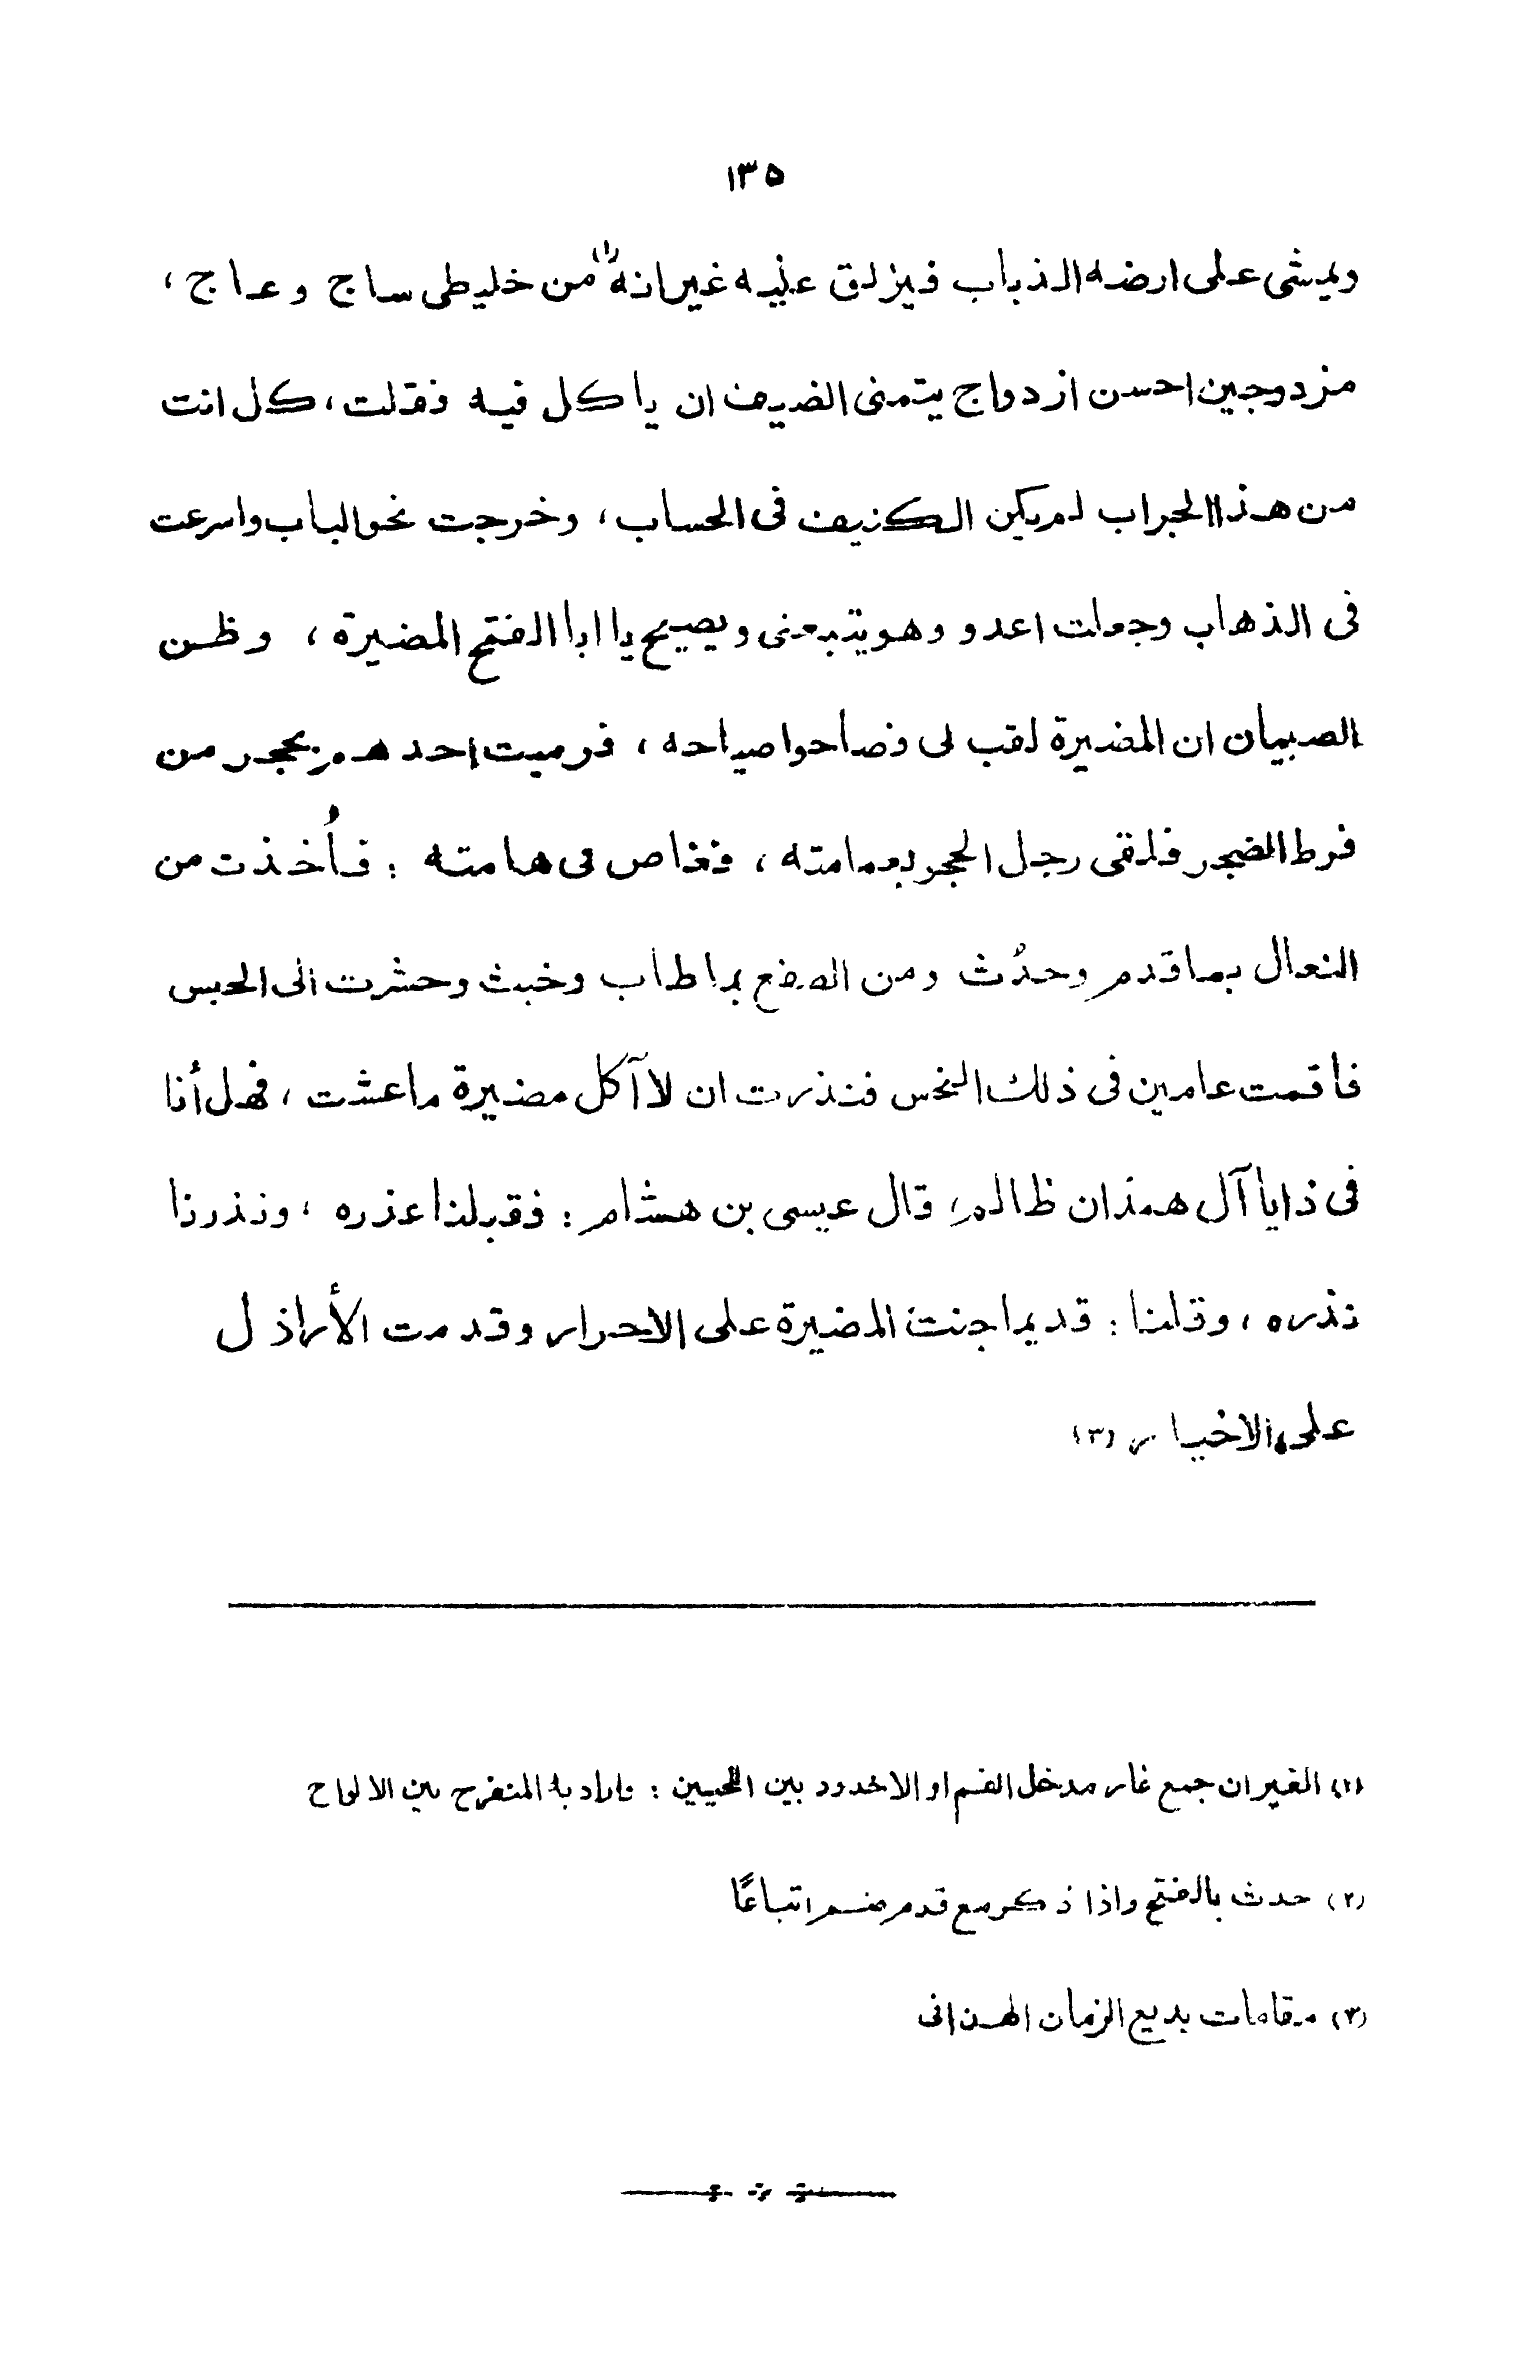 ١٣٥
ويمشى على ارضه الذباب فيزلق عليه غيرانه(١) من خليطى ساج وعاج ،
مزدوجين احسن ازدواج يتمنى الضيف ان ياكل فيه فقلت، كل انت
من هذا الجراب لم يكن الكنيف فى الحساب، وخرجت نحو الباب واسرعت
فى الذهاب وجعلت اعدو وهو يتبعنى ويصيح يا ابا الفتح المضيرة ، وظن
الصبيان ان المضيرة لقب لى فصاحوا صياحه ، فرميت احدهم بحجر من
فرط الضجر فلقى رجل الحجر بعمامته ، فغاص فى هامته : فأُخذت من
النعال بما قدم وحدُث ومن الصفع بما طاب وخبث وحشرت الى الحبس
فأقمت عامين فى ذلك النحس فنذرت ان لا آكل مضيرة ما عشت ، فهل أنا
فى ذا يا آل همذان ظالم، قال عيسى بن هشام : فقبلنا عذره ، ونذرنا
نذره ، وقلنا : قديما جنت المضيرة على الاحرار وقدمت الأراذل
على الاخيار (٣)
(١) الغيران جمع غار مدخل الفم او الاخدود بين اللحيين : اراد به المنفرج بين الالواح
(٢) حدث بالفتح واذا ذكر مع قدم ضم اتباعًا
(٣) مقامات بديع الزمان الهمذانى